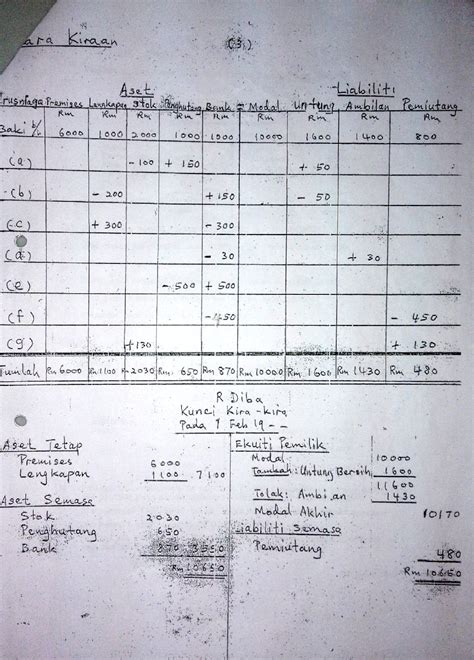 Kiraan
(3.)
Aset Liabiliti
Premises Lengkapan Stok Penghutang Bank = Modal Untung Ambilan Pemiutang
Rm Rm Rm Rm Rm Rm Rm Rm Rm
Baki b/ 6000 1000 2000 1000 1000 10000 1600 1400 800
(a) - 100 + 150 + 50
(b) - 200 + 150 - 50
(c) + 300 - 300
(d) - 30 + 30
(e) - 500 + 500
(f) - 450 - 450
(g) +130 + 130
Jumlah Rm 6000 Rm 1100 Rm 2030 Rm. 650 Rm 870 Rm 10000 Rm 1600 Rm 1430 Rm 480
R Diba
Kunci Kira-kira
Pada 1 Feb 19--
Aset Tetap Ekuiti Pemilik
Premises 6000 Modal 10000
Lengkapan 1100 7100 Tambah: Untung Bersih 1600
11600
Aset Semasa Tolak: Ambilan 1430
Stok 2030 Modal Akhir 10170
Penghutang 650 Liabiliti Semasa
Bank 870 3550 Pemiutang 480
Rm 10650 Rm 10650